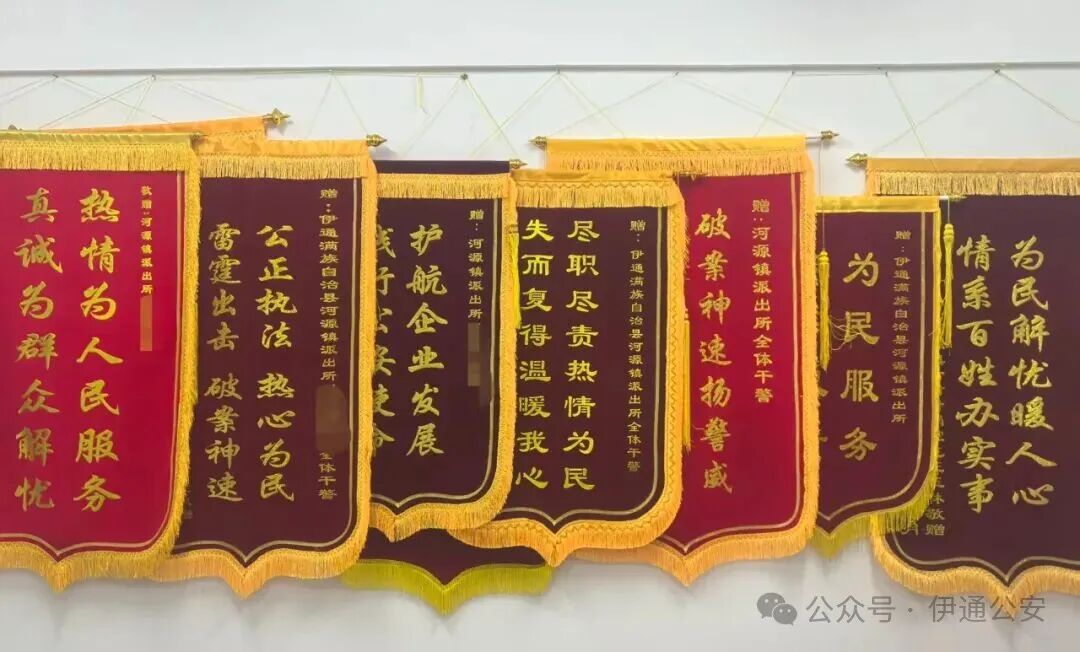 敬赠:河源镇派出所
热情为人民服务
真诚为群众解忧
赠:伊通满族自治县河源镇派出所
全体干警
公正执法 热心为民
雷霆出击 破案神速
赠:河源镇派出所
护航企业发展
赠:伊通满族自治县河源镇派出所全体干警
尽职尽责热情为民
失而复得温暖我心
赠:河源镇派出所全体干警
破案神速扬警威
赠:伊通满族自治县河源镇派出所
为民服务
为民解忧暖人心
情系百姓办实事
敬赠
月
公众号·伊通公安